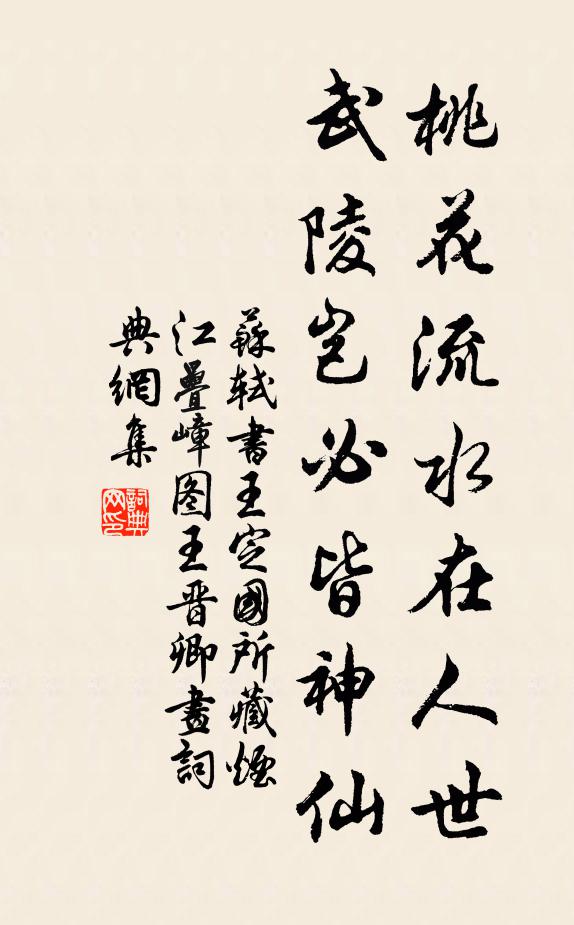 桃花流水在人世
武陵岂必皆神仙
蘇軾書王定國所藏煙
江疊嶂图王晋卿畫詞
典網集
詞典网印